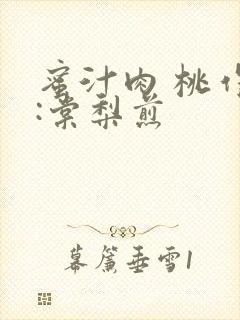 蜜汁肉 桃 作
:棠梨煎
幕簾垂雪1